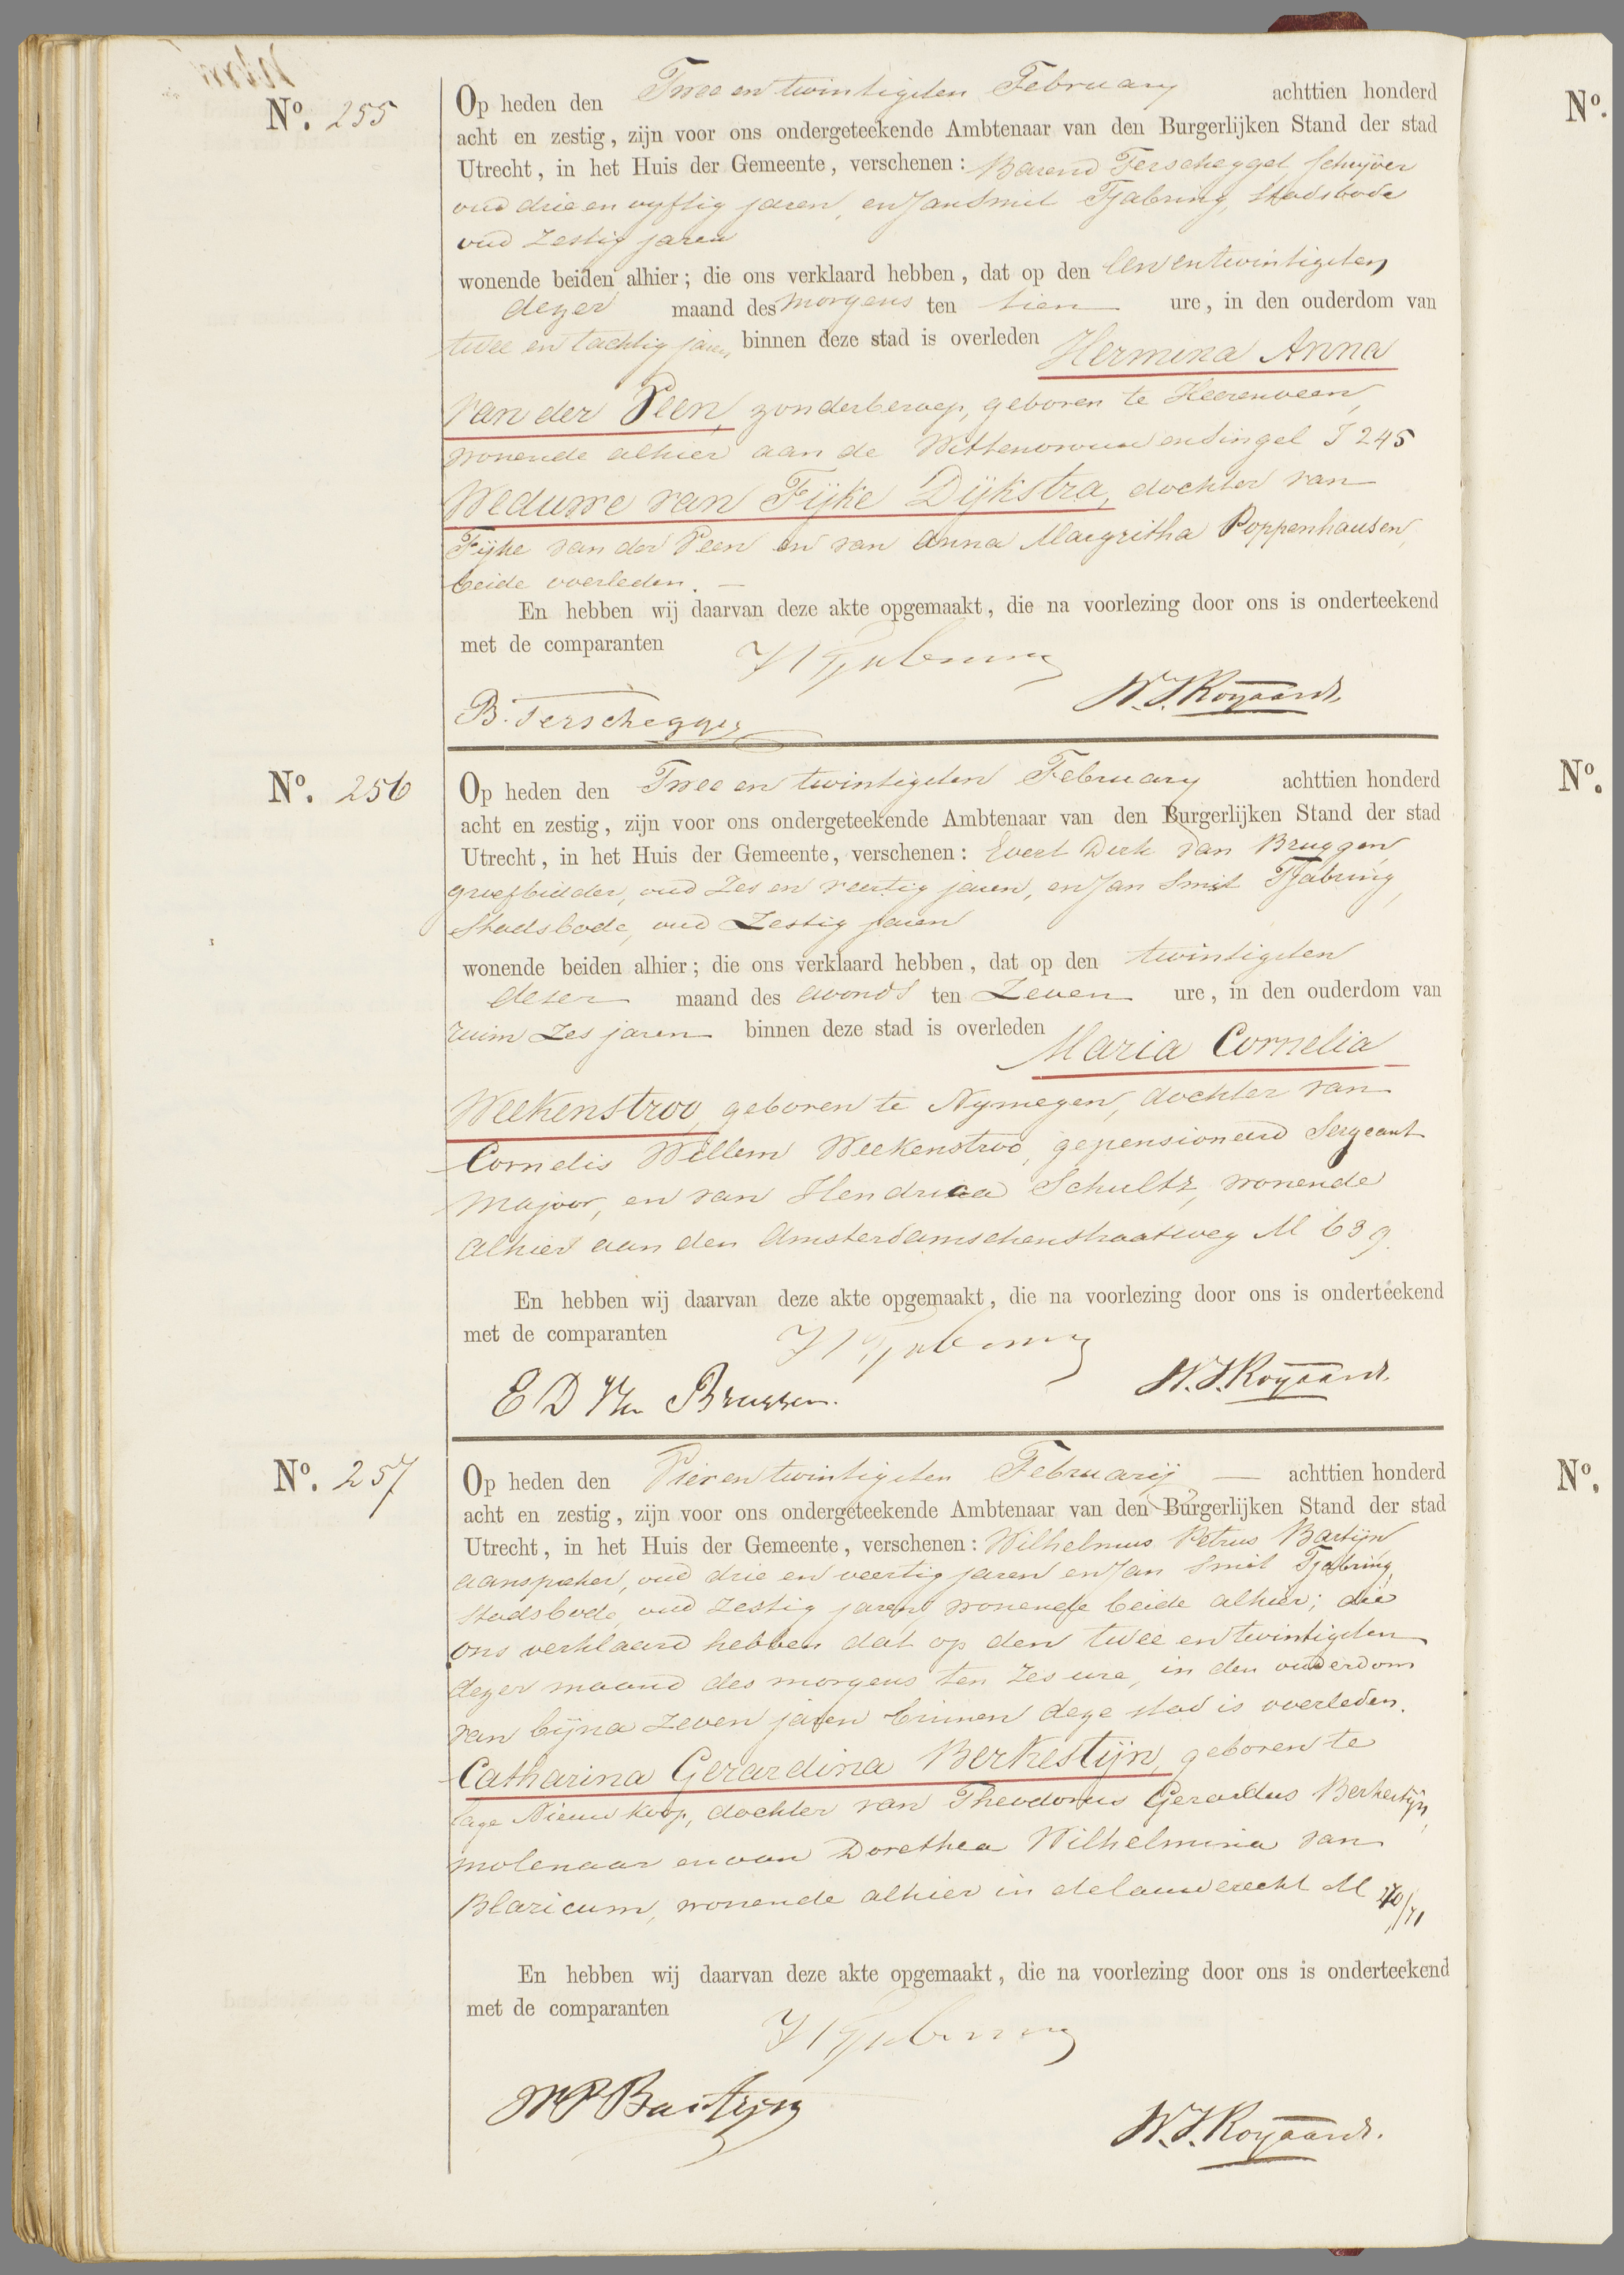 Nº. 255
Op heden den Twee en twintigsten February achttien honderd
acht en zestig, zijn voor ons ondergeteekende Ambtenaar van den Burgerlijken Stand der stad
Utrecht, in het Huis der Gemeente, verschenen: Barend Terschegget schrijver
oud drie en vyftig jaren, en Jan Smit Tjabring, stadsbode
oud zestig jaren
wonende beiden alhier; die ons verklaard hebben, dat op den een en twintigsten
dezer maand des morgens ten tien ure, in den ouderdom van
twee en tachtig jaren, binnen deze stad is overleden Hermina Anna
van der Veen, zonder beroep, geboren te Heerenveen,
wonende alhier aan de Wittevrouwensingel I 245
Weduwe van Fijke Dijkstra, dochter van
Fijke van der Veen en van Anna Margritha Poppenhausen,
beide overleden. —
En hebben wij daarvan deze akte opgemaakt, die na voorlezing door ons is onderteekend
met de comparanten
J S Tjabring
W. J. Royaards.
B. Terschegget
Nº. 256
Op heden den Twee en twintigsten February achttien honderd
acht en zestig, zijn voor ons ondergeteekende Ambtenaar van den Burgerlijken Stand der stad
Utrecht, in het Huis der Gemeente, verschenen: Evert Dirk van Bruggen
groefbidder, oud zes en veertig jaren, en Jan Smit Tjabring,
Stadsbode, oud zestig jaren
wonende beiden alhier; die ons verklaard hebben, dat op den twintigsten
dezer maand des avonds ten zeven ure, in den ouderdom van
ruim zes jaren binnen deze stad is overleden Maria Cornelia
Weekenstroo, geboren te Nymegen, dochter van
Cornelis Willem Weekenstroo, gepensioneerd Sergeant
Majoor, en van Hendrica Schultz, wonende
alhier aan den Amsterdamschenstraatweg M 63 g.
En hebben wij daarvan deze akte opgemaakt, die na voorlezing door ons is onderteekend
met de comparanten
J S Tjabring
W. J. Royaards.
E D Van Bruggen.
Nº. 257
Op heden den Vier en twintigsten Februarij — achttien honderd
acht en zestig, zijn voor ons ondergeteekende Ambtenaar van den Burgerlijken Stand der stad
Utrecht, in het Huis der Gemeente, verschenen: Wilhelmus Petrus Bastijn
aanspreker, oud drie en veertig jaren en Jan Smit Tjabring,
stadsbode, oud zestig jaren, wonende beide alhier; die
ons verklaard hebben dat op den twee en twintigsten
dezer maand des morgens ten zes ure, in den ouderdom
van bijna zeven jaren binnen deze stad is overleden.
Catharina Gerardina Berkestijn, geboren te
lage Nieuwkoop, dochter van Theodorus Gerardus Berkestijn,
molenaar en van Dorethea Wilhelmina van
Blaricum, wonende alhier in de lauwerecht M 70/71
En hebben wij daarvan deze akte opgemaakt, die na voorlezing door ons is onderteekend
met de comparanten
J S Tjabring
W P Bastijn
W. J. Royaards.
Nº.
Nº.
Nº.